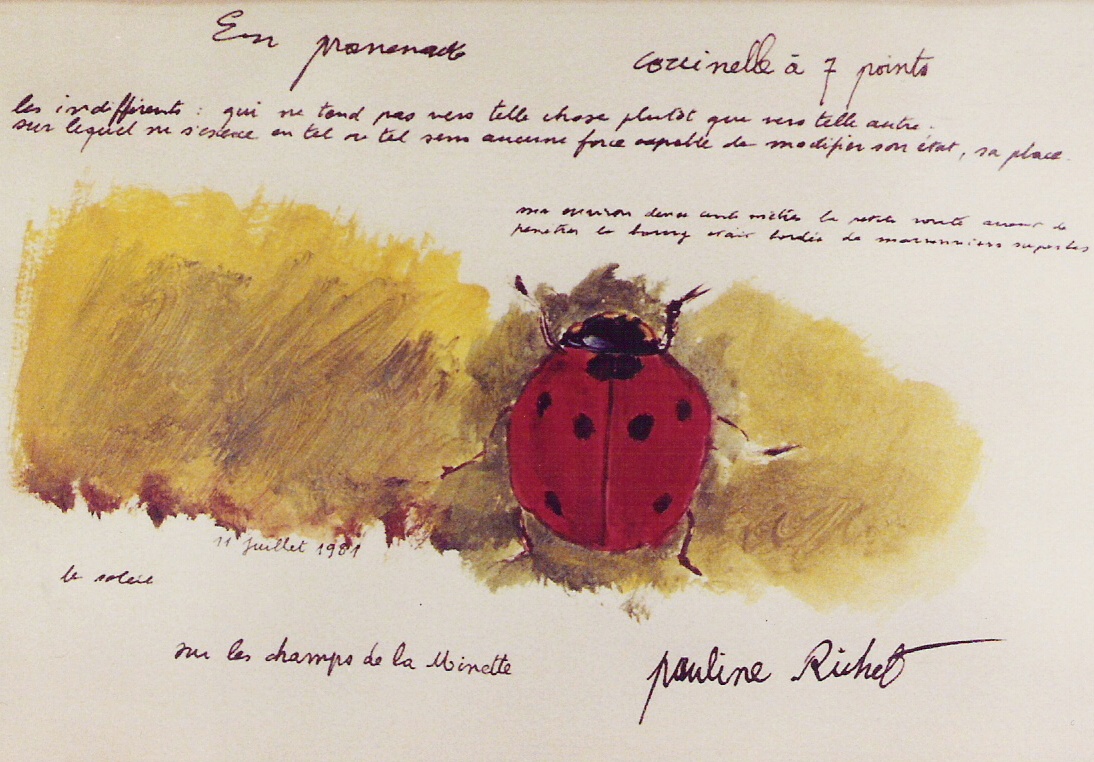 En promenade
coccinelle à 7 points
les indifférents : qui ne tend pas vers telle chose plutôt que vers telle autre.
sur lequel ne s'exerce en tel ou tel sens aucune force capable de modifier son état, sa place.
sur environ deux cents mètres la petite route avant de
pénétrer le bourg était bordée de marronniers superbes
11 juillet 1981
le soleil
sur les champs de la Minette
pauline Richet